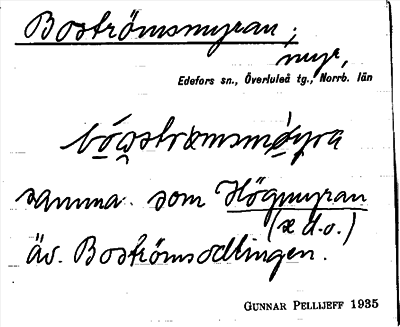 Boströmsmyran;
myr,
Edefors sn., Överluleå tg., Norrb. län
samma som Högmyran
(se d.o.)
äv. Boströmsodlingen.
GUNNAR PELLIJEFF 1935